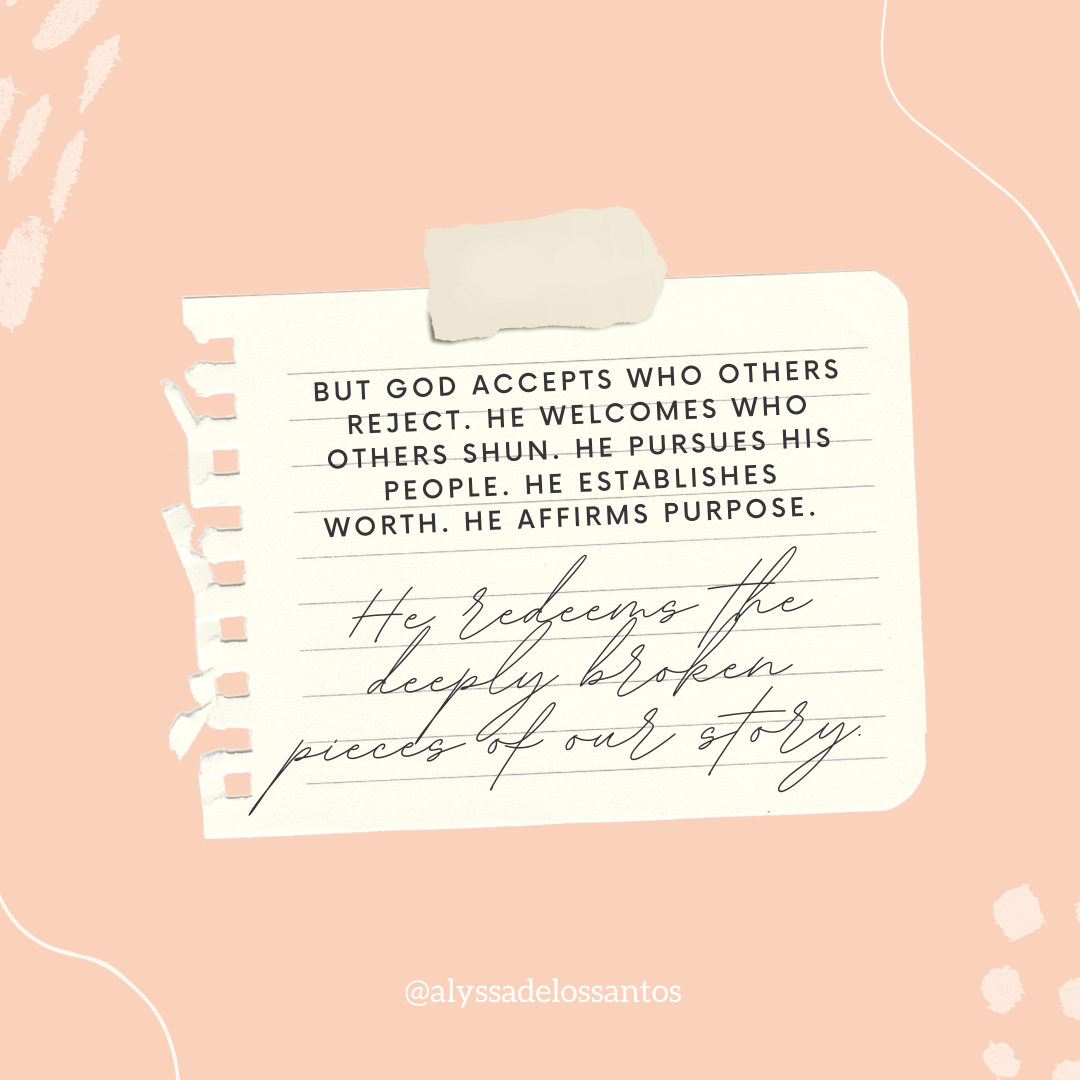 BUT GOD ACCEPTS WHO OTHERS
REJECT. HE WELCOMES WHO
OTHERS SHUN. HE PURSUES HIS
PEOPLE. HE ESTABLISHES
WORTH. HE AFFIRMS PURPOSE.
He redeems the
deeply broken
pieces of our story.
@alyssadelossantos